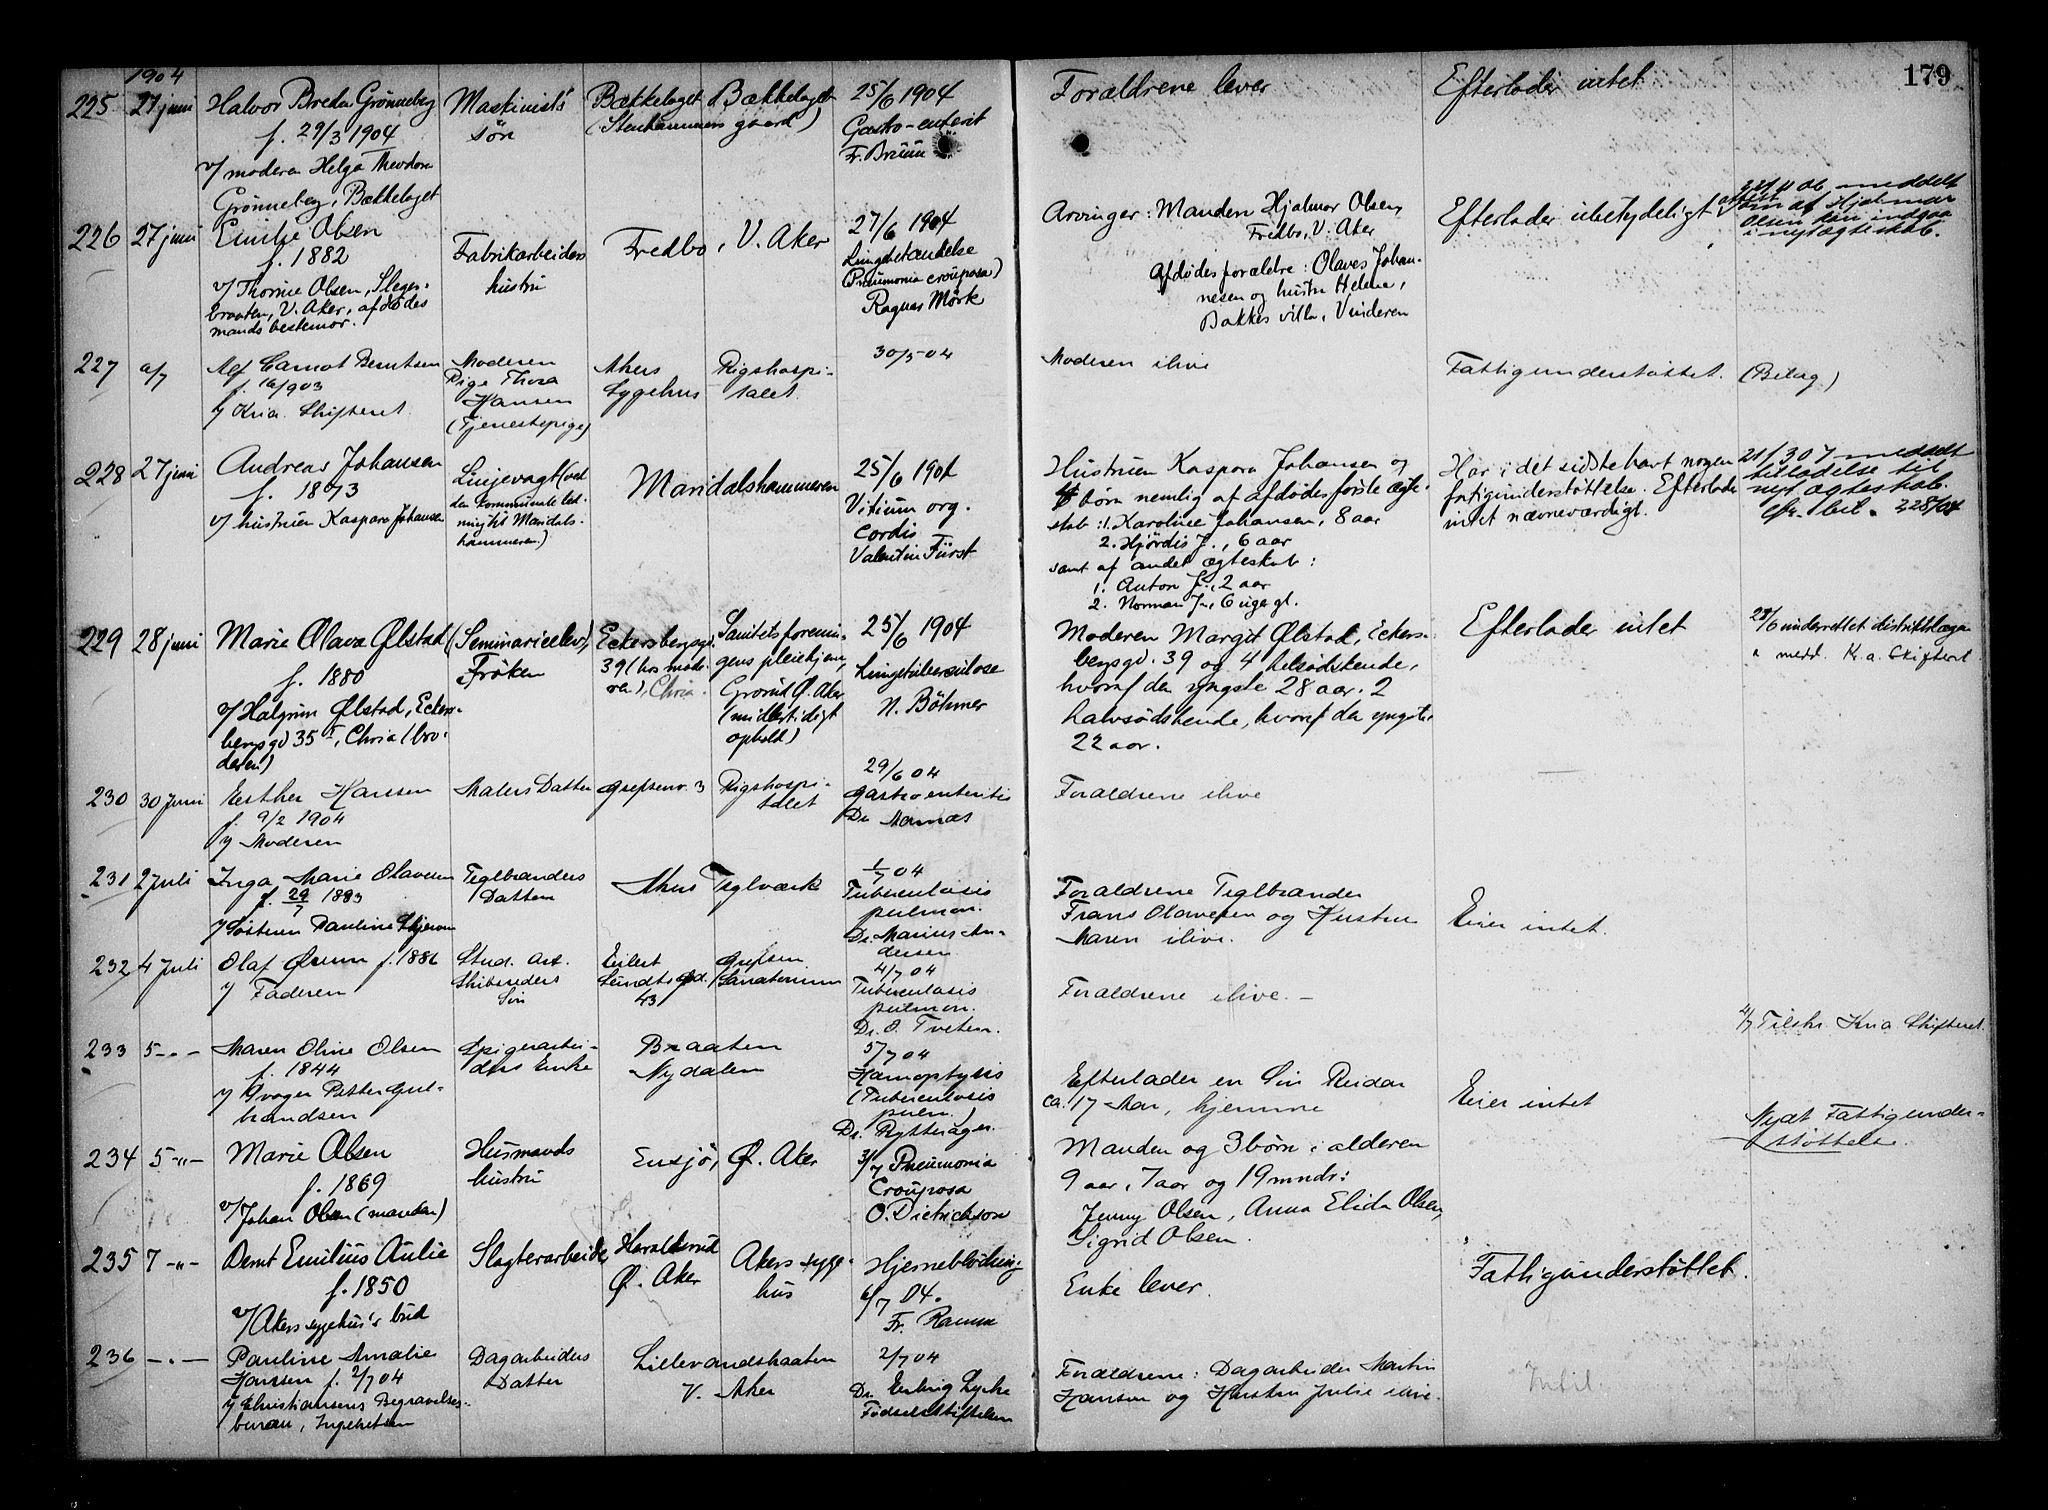 179
1904
225 27 juni Halvor Breda Grønneberg Maskinists Bækkelaget Bækkelaget 25/6 1904 Forældrene lever Efterlader intet
f. 29/3 1904 søn (Stenhammers gaard) Gastro-enterit
v/ moderen Helga Theodora Fr. Bruun
Grønneberg, Bækkelaget
226 27 juni Emilie Olsen Fabrikarbeiders Fredbo, V. Aker 27/6 1904 Arvinger: Manden Hjalmar Olsen, Efterlader ubetydeligt
f. 1882 hustru Lungebetændelse Fredbo, V. Aker
v/ Thorine Olsen, Sleger- (Pneumonia crouposa) Afdødes forældre: Olaves Johan-
braaten, V. Aker, afdødes Ragnar Mörk nesen og hustru Helene,
mands bestemor. Bakkes villa, Vinderen
meddelt
af Hjalmar
Olsen kan indgaa
i nyt ægteskab.
227 Alf Carnot Berntsen Moderen Akers Rigshospi- 30/5-04 Moderen ilive Fattigunderstøttet. (Bilag)
Pige Thora Sygehus talet
v/ Kria. Skifteret Hansen
(Tjenestepige)
228 27 juni Andreas Johansen Linjevagt (ved Maridalshammeren 25/6 1904 Hustruen Kaspara Johansen og Har i det sidste havt nogen 21/3 07 meddelt
f. 1873 den kommunale led- Vitium org. børn nemlig af afdødes første ægte- fattigunderstøttelse. Efterlader tilladelse til
v/ hustruen Kaspara Johansen ning til Maridals- Cordis skab: 1. Karoline Johansen, 8 aar intet nævneværdigt. nyt ægteskab.
hammeren.) Valentin Fürst 2. Hjørdis J., 6 aar bil. 228/04
samt af andet ægteskab:
1. Anton J., 2 aar
2. Norman J., 6 uger gl.
229 28 juni Marie Olava Ølstad (Seminarieelev), Eckersbergsgd. Sanitetsforenin- 25/6 1904 Moderen Margit Ølstad, Eckers- Efterlader intet 28/6 underrettet distriktslægen
f. 1880 Frøken 39 (hos mode- gens pleiehjem, Lungetuberculose bergsgd. 39 og 4 helsødskende, medd. Kr.a. Skifteret
v/ Halgrim Ølstad, Eckers- ren), Chria. Grorud Ø. Aker N. Böhmer hvoraf den yngste 28 aar. 2
bergsgd 35 I, Chria (bro- (midlertidigt halvsødskende, hvoraf den yngste
deren) ophold) 22 aar.
230 30 Juni Esther Hansen Malers Datter Grefsenv. 3 Rigshospi- 29/6 04 Forældrene ilive —
f. 9/2 1904 talet Gastroenteritis
v/ Moderen Dr
231 2 Juli Inga Marie Olavesen Teglbrænders Akers Teglværk 1/7 04 Forældrene Teglbrænder Eier intet.
f. 29/7 1883 Datter Tuberculosis Frans Olavesen og Hustru
v/ Søsteren Pauline pulmon. Maren ilive.
Dr. Marius An-
dersen
232 4 Juli Olaf f. 1886 Stud. art. Eilert Grefsen 4/7 04 Forældrene ilive. —
v/ Faderen Skibsreders Sundts gd. Sanatorium Tuberculosis
Søn 43 pulmon.
Dr. O. Tveten.
4/7 Tilskr. Kria Skifteret
233 5-"- Maren Oline Olsen Spigerarbei- Braaten 5/7 04 Efterlader en Søn Reidar Eier intet
f. 1844 ders Enke Nydalen Hæmoptysis ca. 17 Aar, hjemme
v/ Svoger Petter Gul- (Tuberculosis
brandsen pulm.)
Dr. Rytterager.
Nydt Fattigunder-
støttelse.
234 5-"- Marie Olsen Husmands Ensjø, Ø. Aker 3/7 Pneumonia Manden og 3 børn i alderen
f. 1869 hustru Crouposa 9 aar, 7 aar og 19 mndr:
v/ Johan Olsen (manden) O. Dietrichson Jenny Olsen, Anna Elida Olsen,
Sigrid Olsen.
235 7-"- Bernt Emilius Aulie Slagterarbeider Haraldsrud Akers syge- Hjerneblødning Enke lever. Fattigunderstøttet.
f. 1850 Ø. Aker hus 6/7 04.
v/ Akers sygehus's bud Fr. Ramm
236 -"- Pauline Amalie Dagarbeiders Lillevandsbraaten 2/7 04 Forældrene: Dagarbeider Martin Intil
Hansen f. 2/7 04 Datter V. Aker Dr. Erling Lycke Hansen og Hustru Julie ilive.
v/ Christiansens Begravelses- Fødselsstiftelsen
bureau,